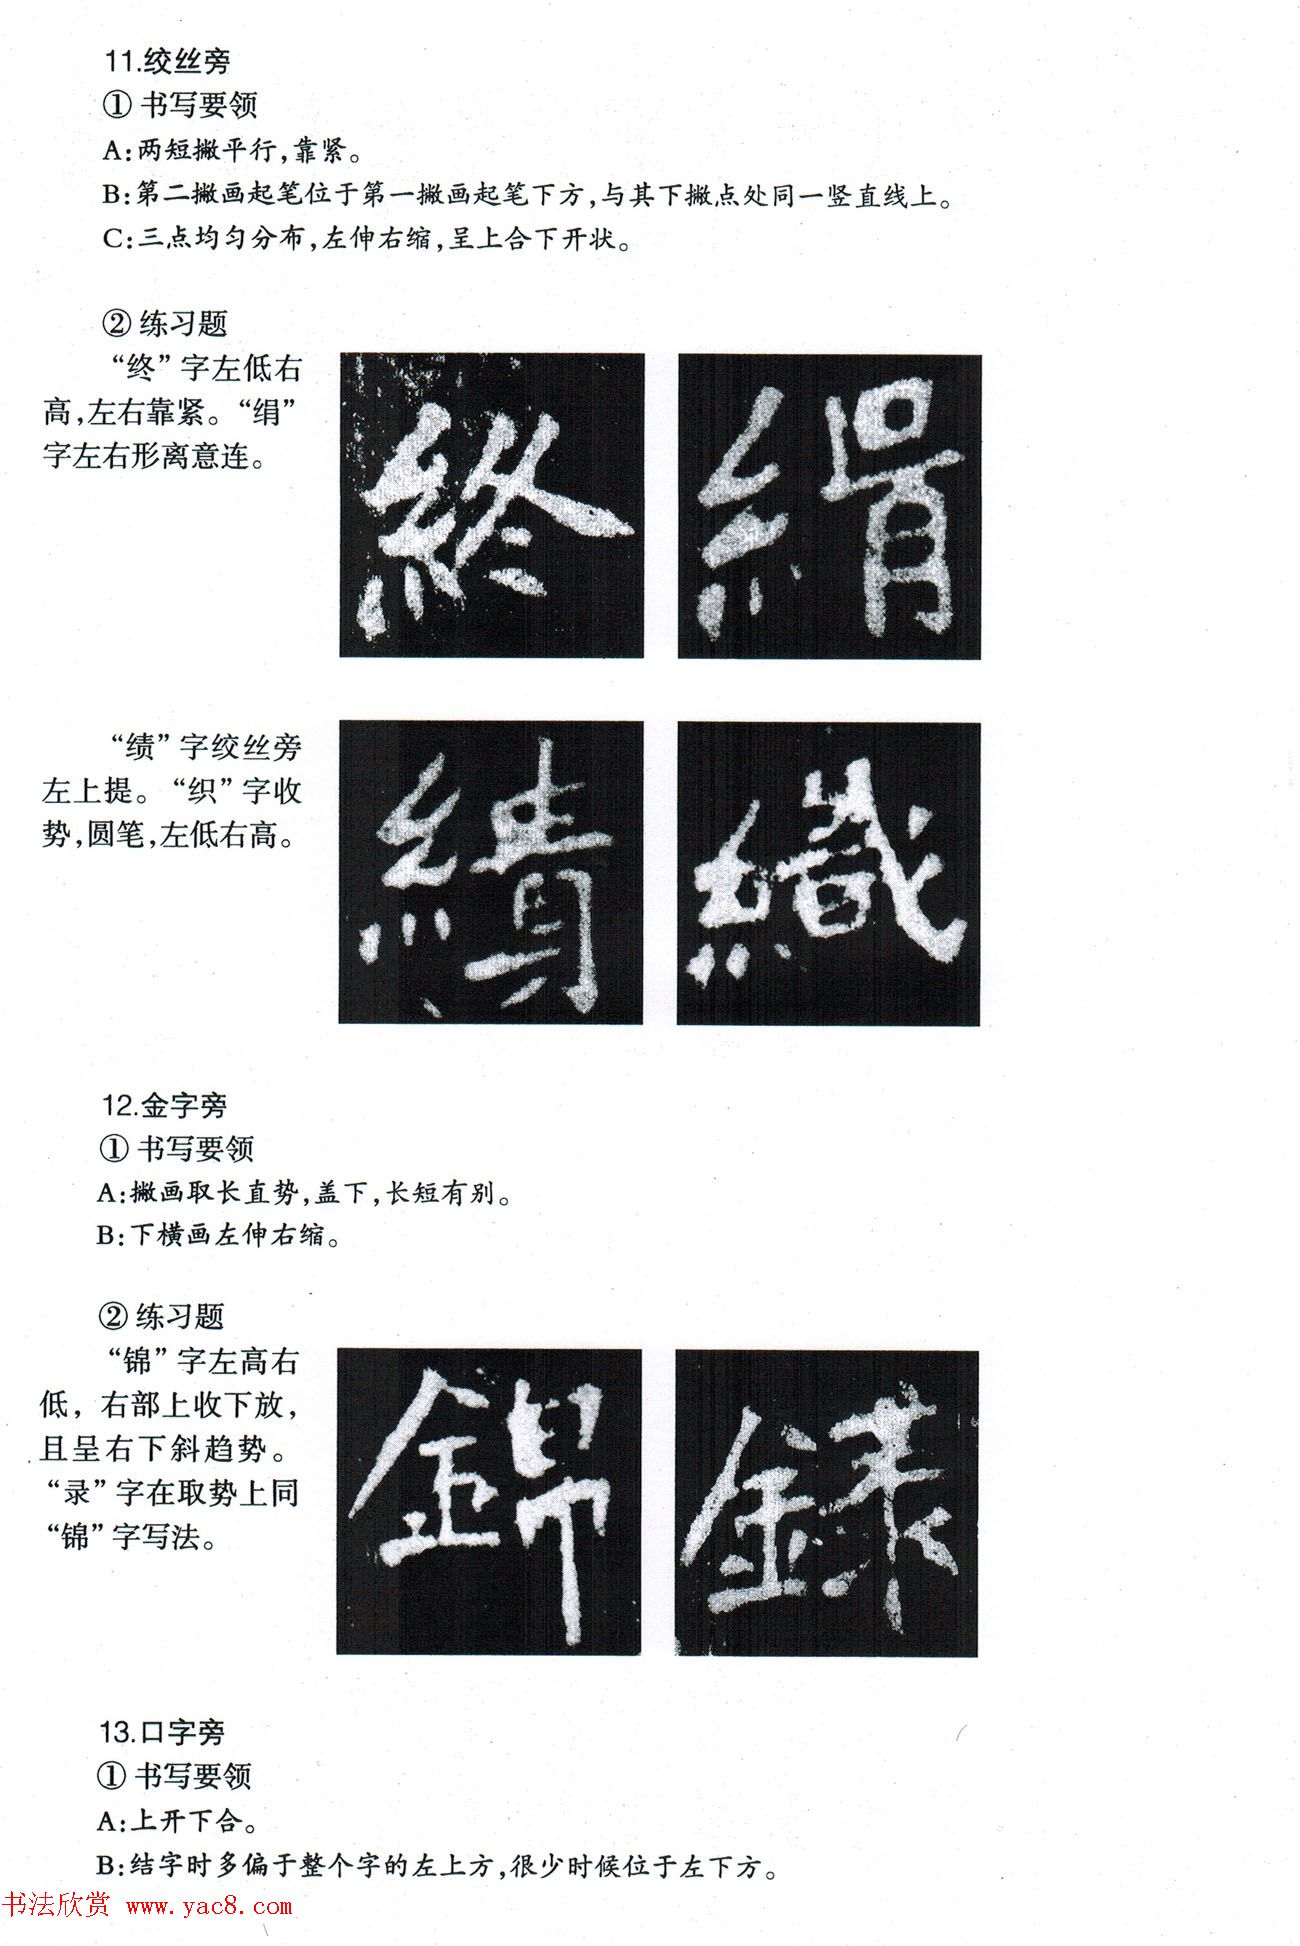 11.绞丝旁
① 书写要领
A:两短撇平行,靠紧。
B:第二撇画起笔位于第一撇画起笔下方,与其下撇点处同一竖直线上。
C:三点均匀分布,左伸右缩,呈上合下开状。
② 练习题
“终”字左低右
高,左右靠紧。“绢”
字左右形离意连。
終 絹
“绩”字绞丝旁
左上提。“织”字收
势,圆笔,左低右高。
績 織
12.金字旁
① 书写要领
A:撇画取长直势,盖下,长短有别。
B:下横画左伸右缩。
② 练习题
“锦”字左高右
低，右部上收下放，
且呈右下斜趋势。
“录”字在取势上同
“锦”字写法。
錦 録
13.口字旁
① 书写要领
A:上开下合。
B:结字时多偏于整个字的左上方,很少时候位于左下方。
书法欣赏 www.yac8.com